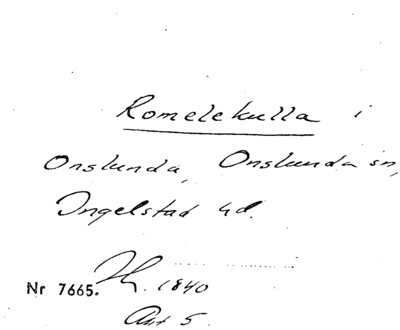 Romelekulla i
Onslunda, Onslunda sn,
Ingelstad hd.
Nr 7665. H. 1840
Art 5.